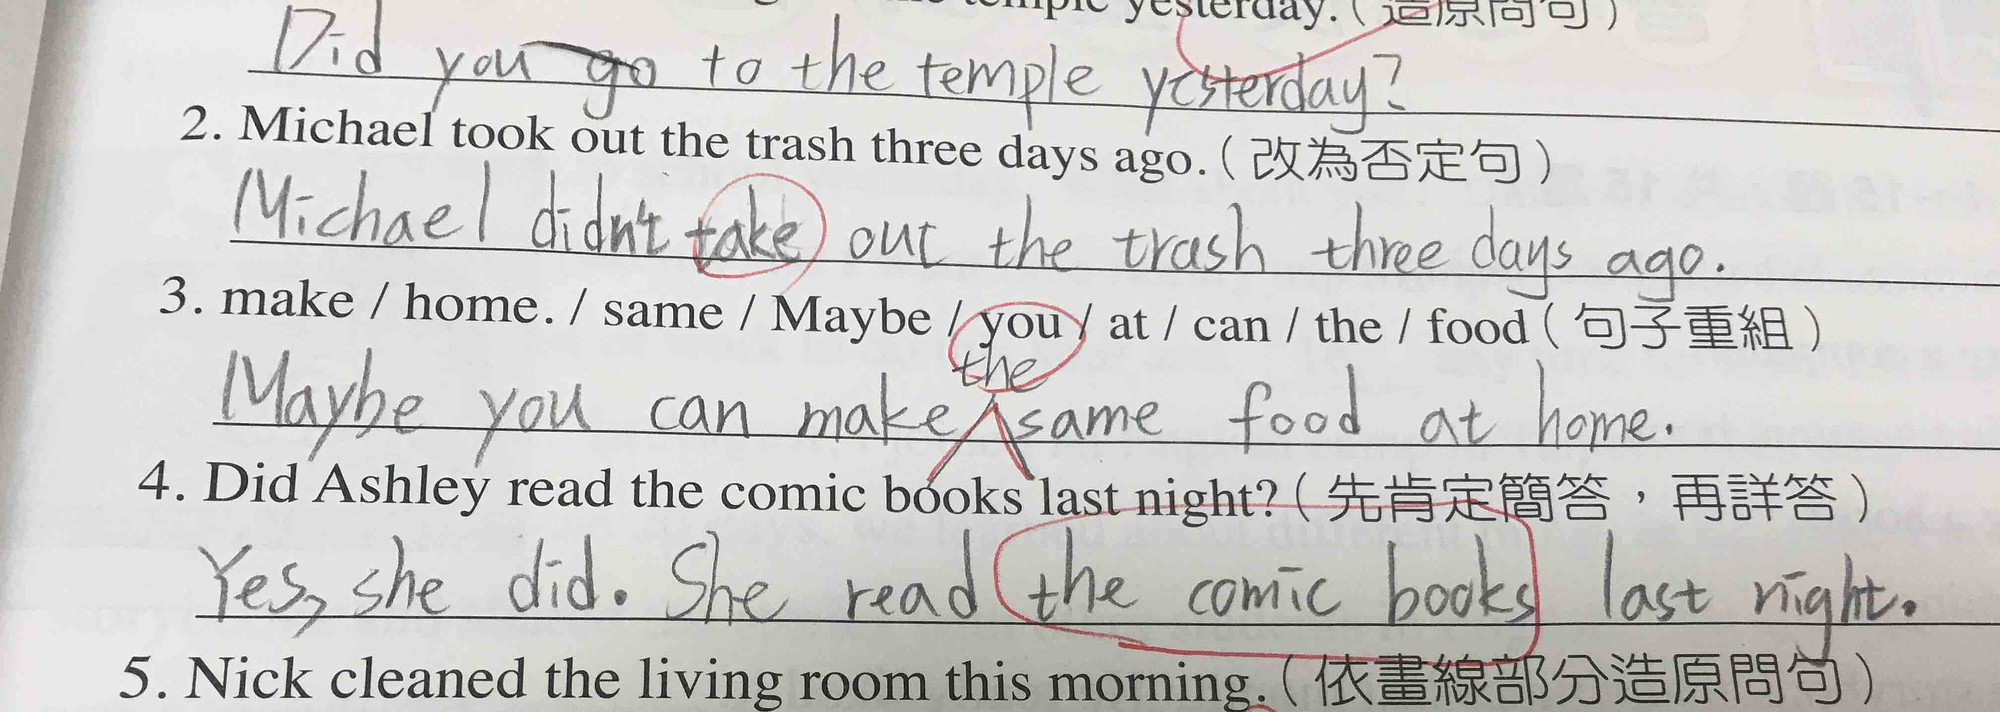 yesterday.(造原問句)
Did you go to the temple yesterday?
2. Michael took out the trash three days ago.(改為否定句)
Michael didn't take out the trash three days ago.
3. make / home. / same / Maybe / you / at / can / the / food(句子重組)
the
Maybe you can make same food at home.
4. Did Ashley read the comic books last night?(先肯定簡答，再詳答)
Yes, she did. She read the comic books last night.
5. Nick cleaned the living room this morning.(依畫線部分造原問句)